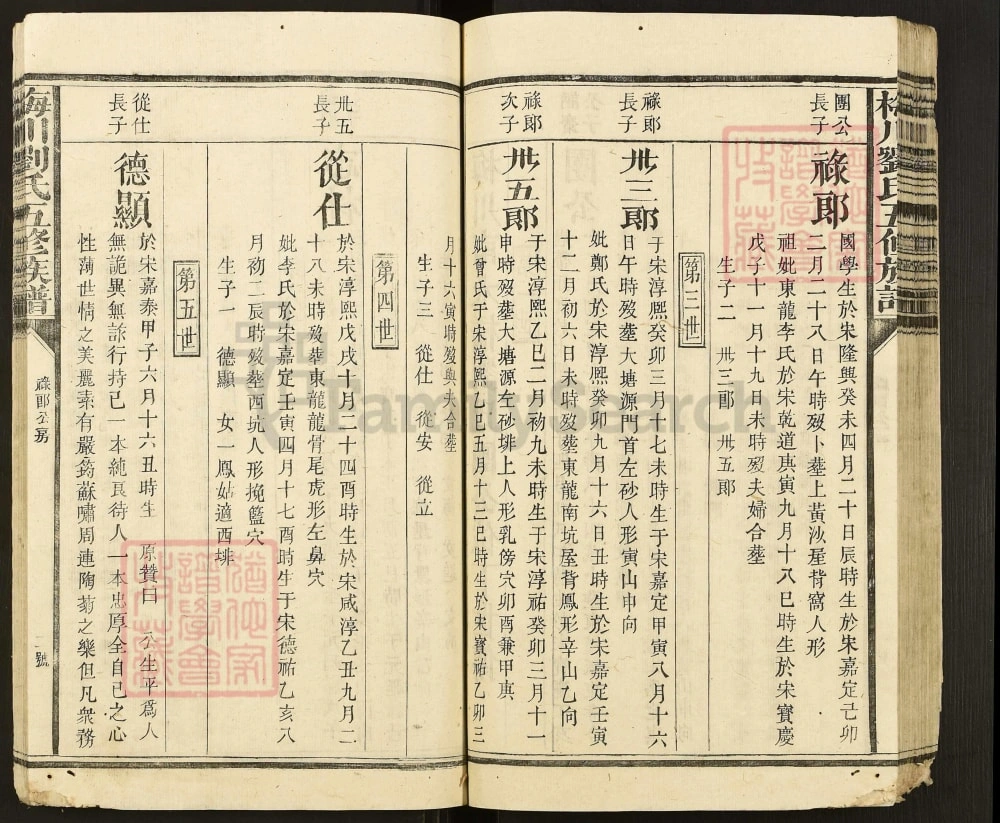 梅川劉氏五修族譜
團公
長子
祿郎
國學生於宋隆興癸未四月二十日辰時生於宋嘉定己卯
二月二十八日午時歿卜塟上黃沙屋背窩人形
祖妣東龍李氏於宋乾道庚寅九月十八巳時生於宋寶慶
戊子十一月十九日未時歿夫婦合塟
生子二 卅三郎 卅五郎
第三世
祿郎
長子
卅三郎
于宋淳熙癸卯三月十七未時生于宋嘉定甲寅八月十六
日午時歿塟大塘源門首左砂人形寅山申向
妣鄭氏於宋淳熙癸卯九月十六日丑時生於宋嘉定壬寅
十二月初六日未時歿塟東龍南坑屋背鳳形辛山乙向
祿郎
次子
卅五郎
于宋淳熙乙巳二月初九未時生于宋淳祐癸卯三月十一
申時歿塟大塘源左砂堋上人形乳傍穴卯酉兼甲庚
妣曾氏于宋淳熙乙巳五月十三巳時生於宋寶祐乙卯三
月十六寅時歿與夫合塟
生子三 從仕 從安 從立
第四世
卅五
長子
從仕
於宋淳熙戊戌十月二十四酉時生於宋咸淳乙丑九月二
十八未時歿葬東龍龍骨尾虎形左鼻穴
妣李氏於宋嘉定壬寅四月十七酉時生于宋德祐乙亥八
月初二辰時歿塟西坑人形挽籃穴
生子一 德顯 女一鳳姑適西堋
第五世
從仕
長子
德顯
於宋嘉泰甲子六月十六丑時生 原贊曰 公生平爲人
無詭異無訴行持己一本純良待人一本忠厚全自己之心
性薄世情之美麗素有嚴篛蘇嘯周連陶菊之樂但凡衆務
梅川劉氏五修族譜
祿郎公房
二號
FamilySearch